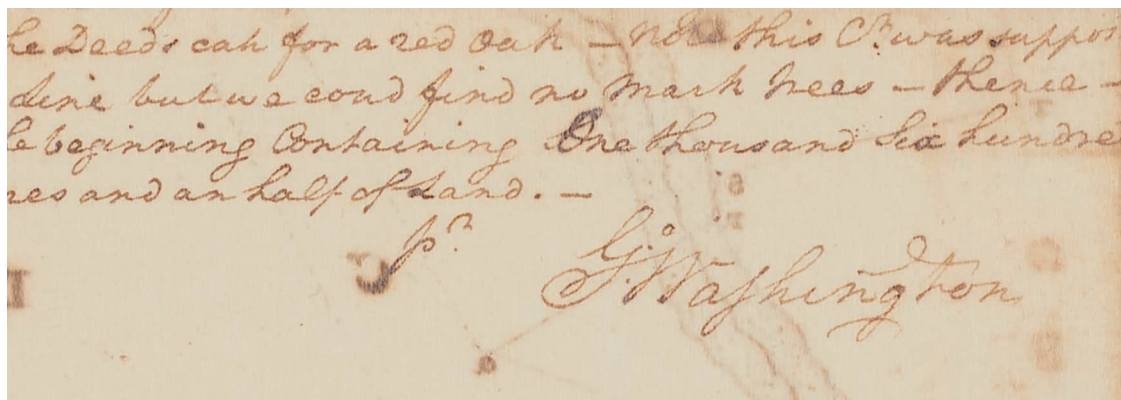 he Deeds call for a red Oak — Note this Cr. was suppos
Line but we coud find no mark trees — thence —
he beginning Containing One thousand Six hundred
res and an half of Land. —
pr.
Go. Washington